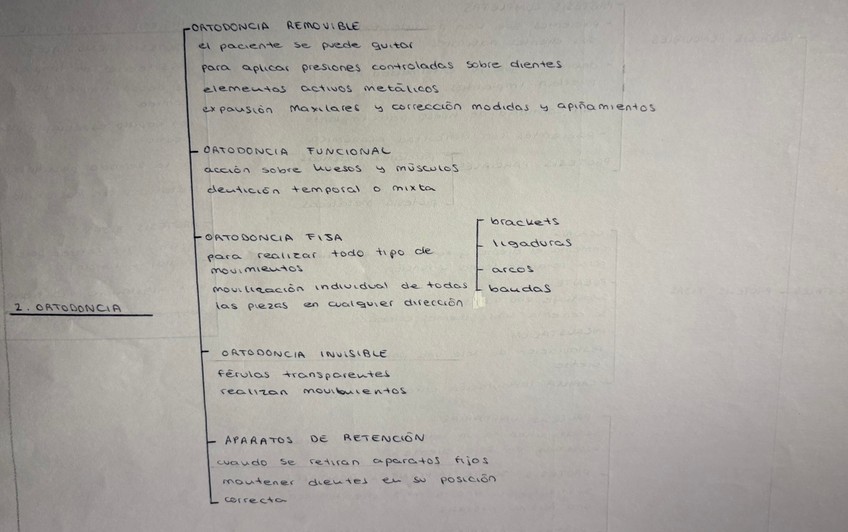 ORTODONCIA REMOVIBLE
el paciente se puede quitar
para aplicar presiones controladas sobre dientes
elementos activos metálicos
expansión maxilares y corrección modidas y apiñamientos
ORTODONCIA FUNCIONAL
acción sobre huesos y músculos
dentición temporal o mixta
ORTODONCIA FIJA
para realizar todo tipo de
movimientos
movilización individual de todas
las piezas en cualquier dirección
brackets
ligaduras
arcos
bandas
2. ORTODONCIA
ORTODONCIA INVISIBLE
férulas transparentes
realizan movimientos
APARATOS DE RETENCIÓN
cuando se retiran aparatos fijos
mantener dientes en su posición
correcta